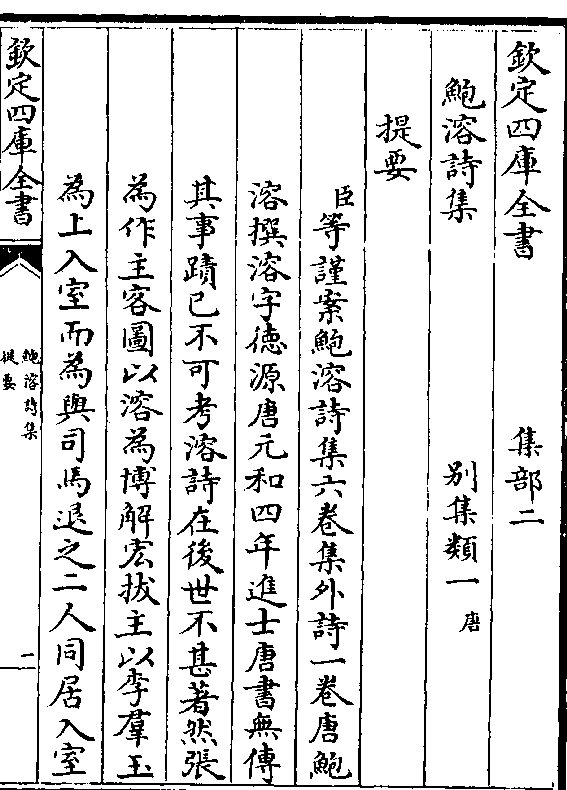 欽定四庫全書 集部二
鮑溶詩集 別集類一 唐
提要
臣等謹案鮑溶詩集六卷集外詩一卷唐鮑
溶撰溶字德源唐元和四年進士唐書無傳
其事蹟已不可考溶詩在後世不甚著然張
為作主客圖以溶為博解宏拔主以李羣玉
為上入室而為與司馬退之二人同居入室
欽定四庫全書
鮑溶詩集
提要
一